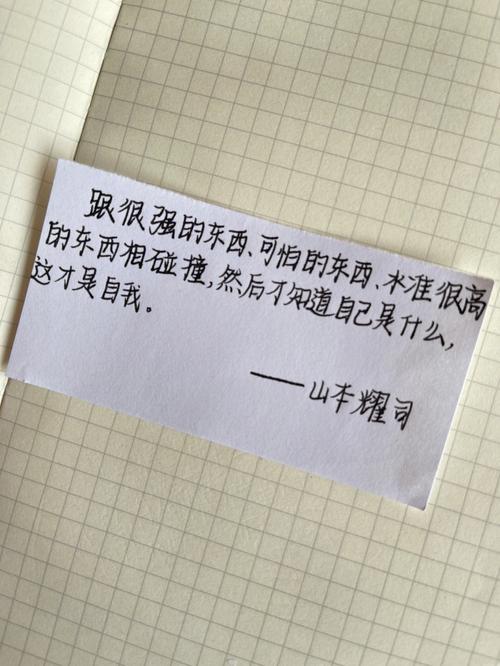 跟很强的东西、可怕的东西、水准很高
的东西相碰撞,然后才知道自己是什么,
这才是自我。
——山本耀司